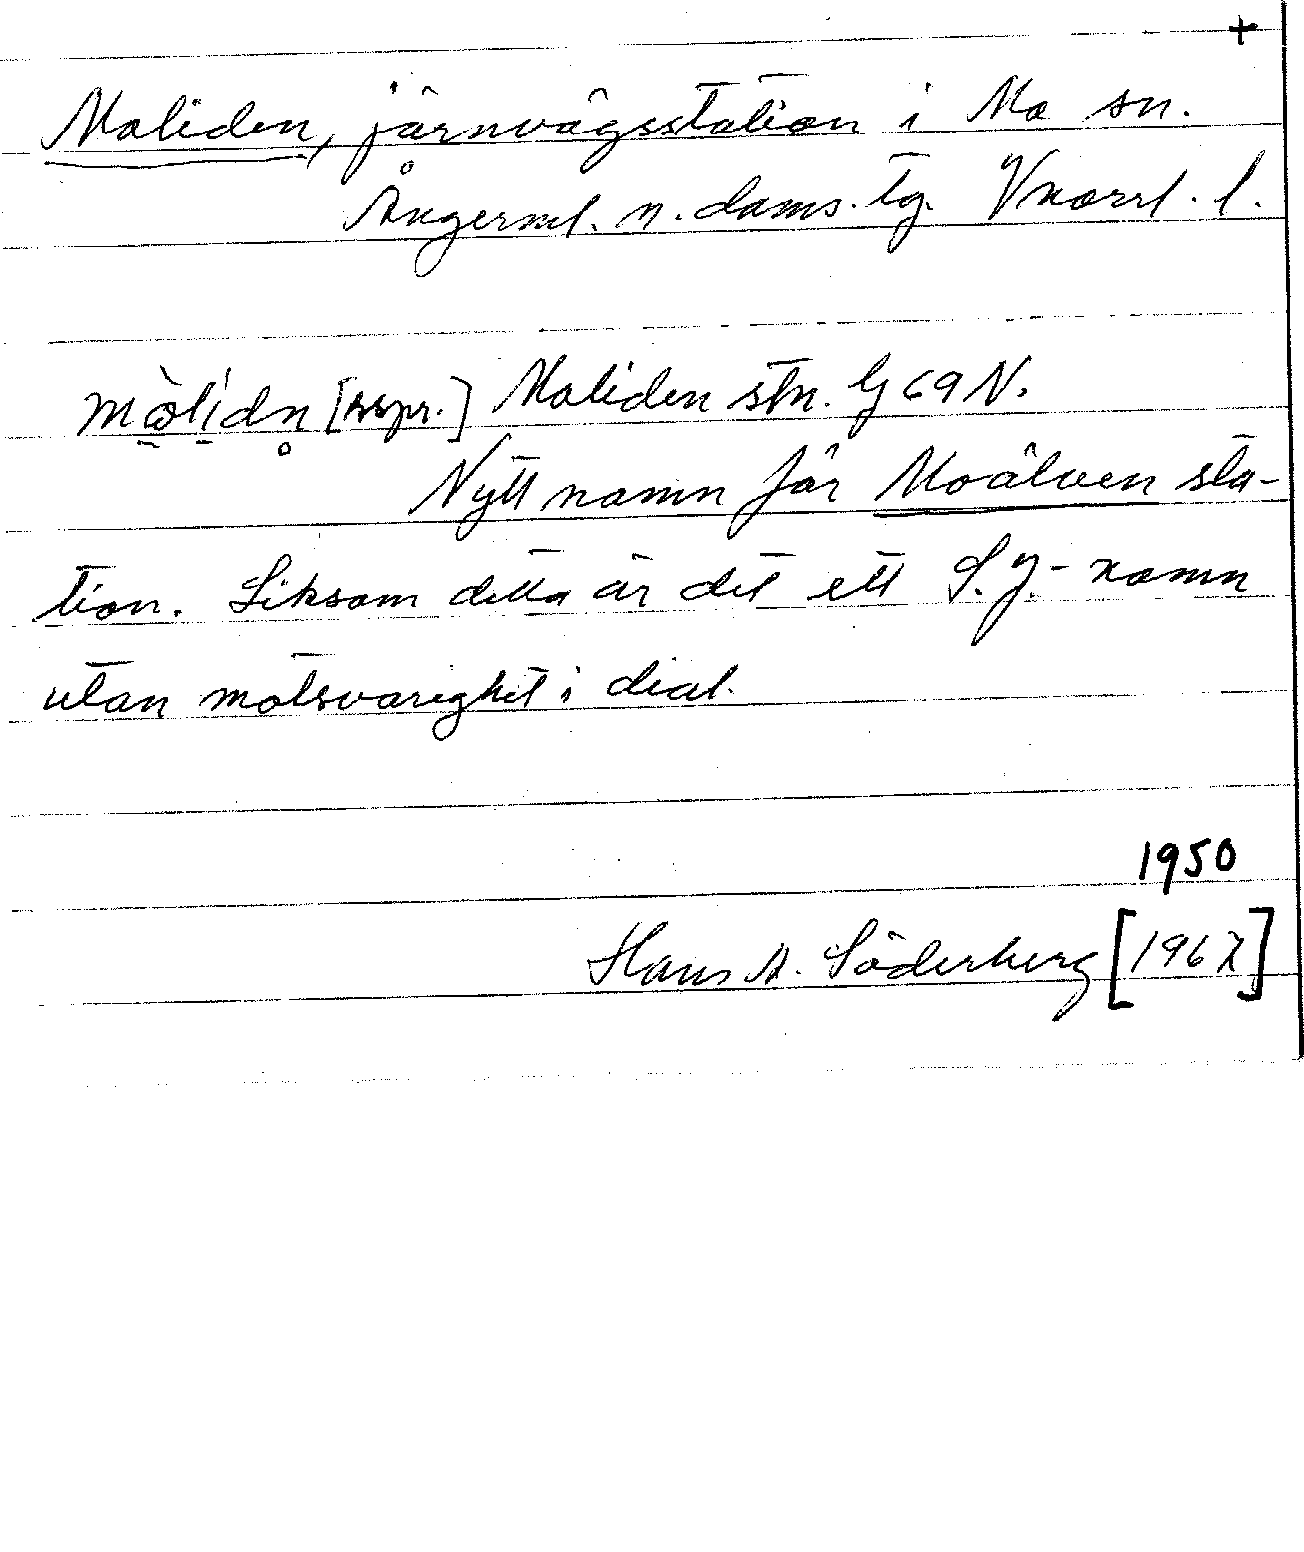 +
Moliden, järnvägsstation i Mo sn.
Ångerml. n. doms. tg. Vnorrl. l.
mὼlídn̥ [rspr.] Moliden stn. G 69 N.
Nytt namn för Moälven sta-
tion. Liksom detta är det ett S.J.-namn
utan motsvarighet i dial.
1950
Hans A. Söderberg [1967]